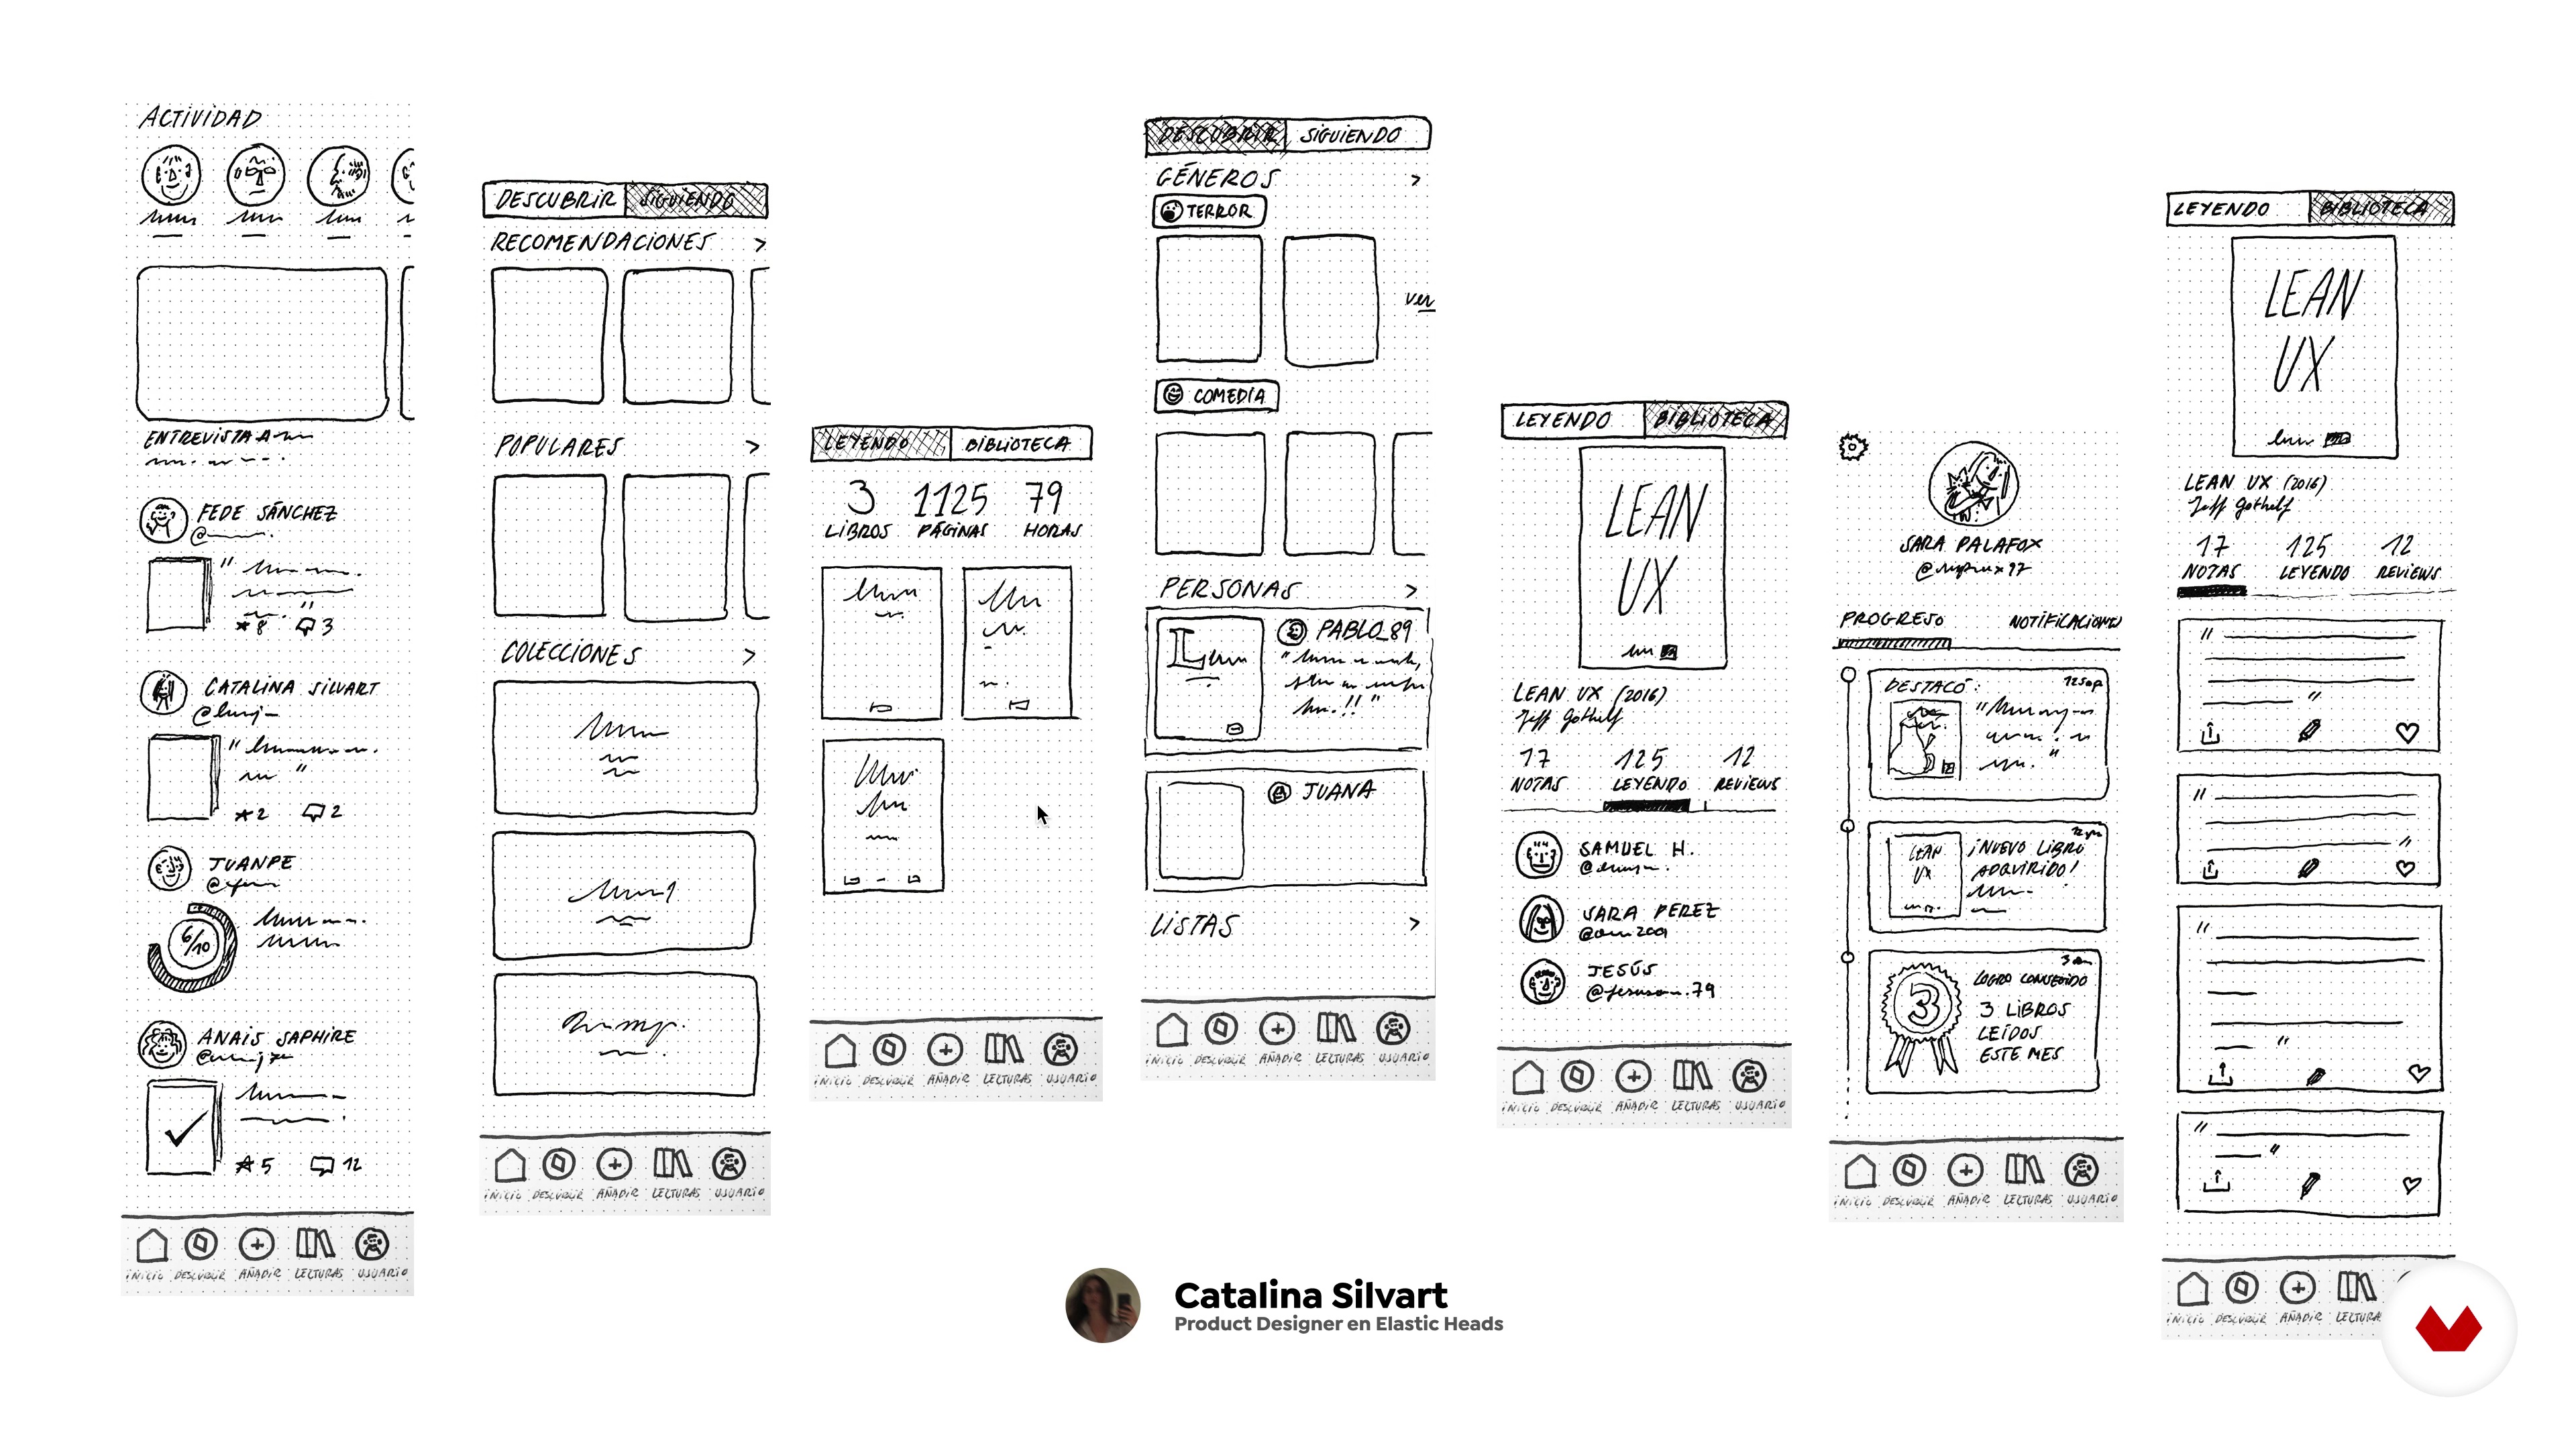 ACTIVIDAD
ENTREVISTA A
FEDE SÁNCHEZ
@
"
"
8 3
CATALINA SILVART
"
"
2 2
JUANPE
6/10
ANAIS SAPHIRE
5 12
INICIO DESCUBRIR AÑADIR LECTURAS USUARIO
DESCUBRIR SIGUIENDO
RECOMENDACIONES >
POPULARES >
COLECCIONES >
INICIO DESCUBRIR AÑADIR LECTURAS USUARIO
LEYENDO BIBLIOTECA
3 1125 79
LIBROS PÁGINAS HORAS
INICIO DESCUBRIR AÑADIR LECTURAS USUARIO
DESCUBRIR SIGUIENDO
GÉNEROS >
TERROR
ver
COMEDIA
PERSONAS >
PABLO_89
JUANA
LISTAS >
INICIO DESCUBRIR AÑADIR LECTURAS USUARIO
LEYENDO BIBLIOTECA
LEAN
UX
LEAN UX (2016)
Jeff Gothelf
17 125 12
NOTAS LEYENDO REVIEWS
SAMUEL H.
SARA PEREZ
JESÚS
INICIO DESCUBRIR AÑADIR LECTURAS USUARIO
SARA PALAFOX
PROGRESO NOTIFICACIONES
DESTACÓ:
LEAN
UX
¡NUEVO LIBRO
ADQUIRIDO!
3
LOGRO CONSEGUIDO
3 LIBROS
LEÍDOS
ESTE MES
INICIO DESCUBRIR AÑADIR LECTURAS USUARIO
LEYENDO BIBLIOTECA
LEAN
UX
LEAN UX (2016)
Jeff Gothelf
17 125 12
NOTAS LEYENDO REVIEWS
INICIO DESCUBRIR AÑADIR LECTURA
Catalina Silvart
Product Designer en Elastic Heads